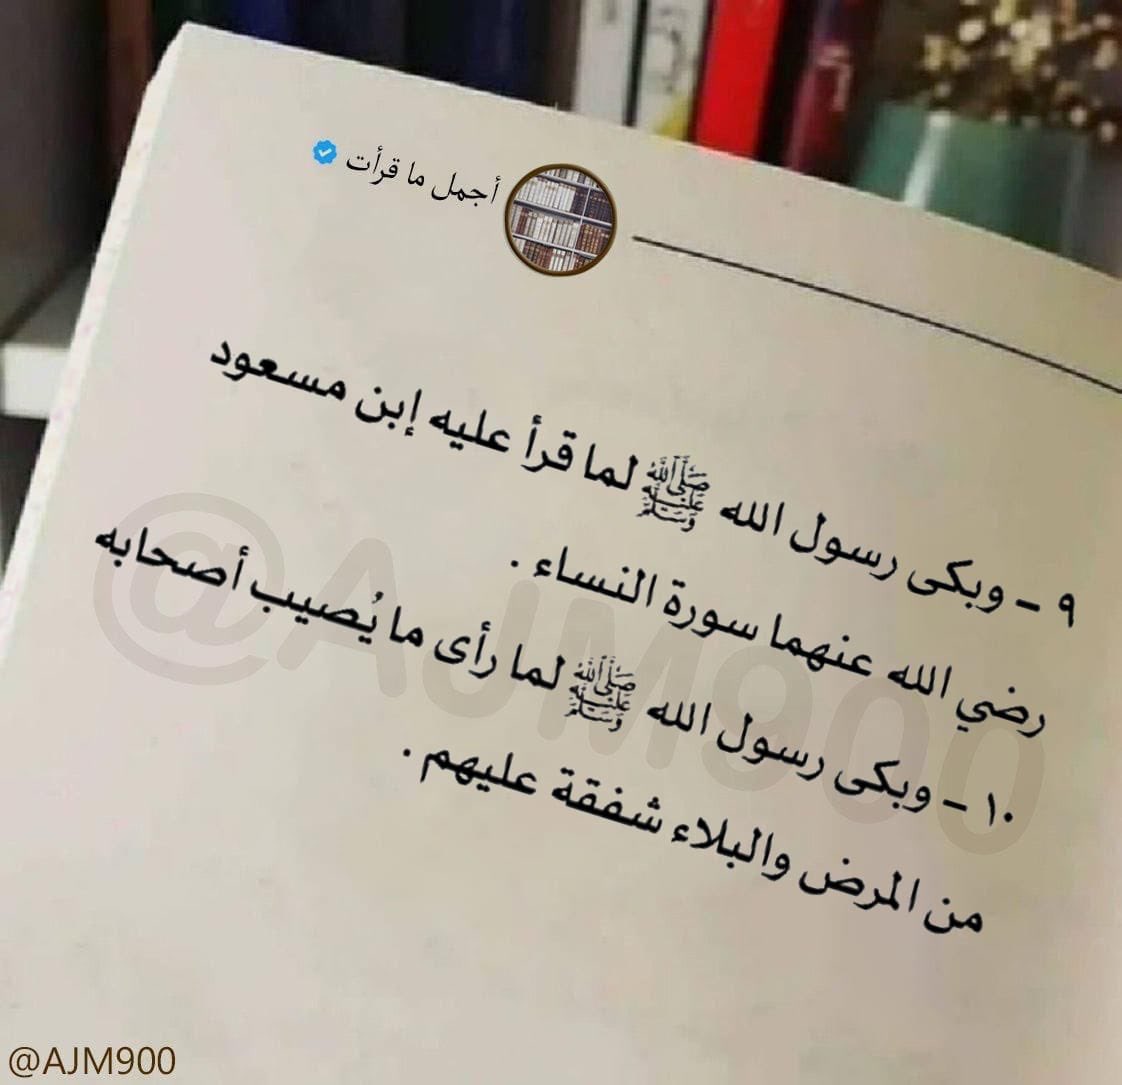 أجمل ما قرأت
٩ - وبكى رسول الله ﷺ لما قرأ عليه إبن مسعود
رضي الله عنهما سورة النساء .
١٠ - وبكى رسول الله ﷺ لما رأى ما يُصيب أصحابه
من المرض والبلاء شفقة عليهم .
@AJM900
@AJM900